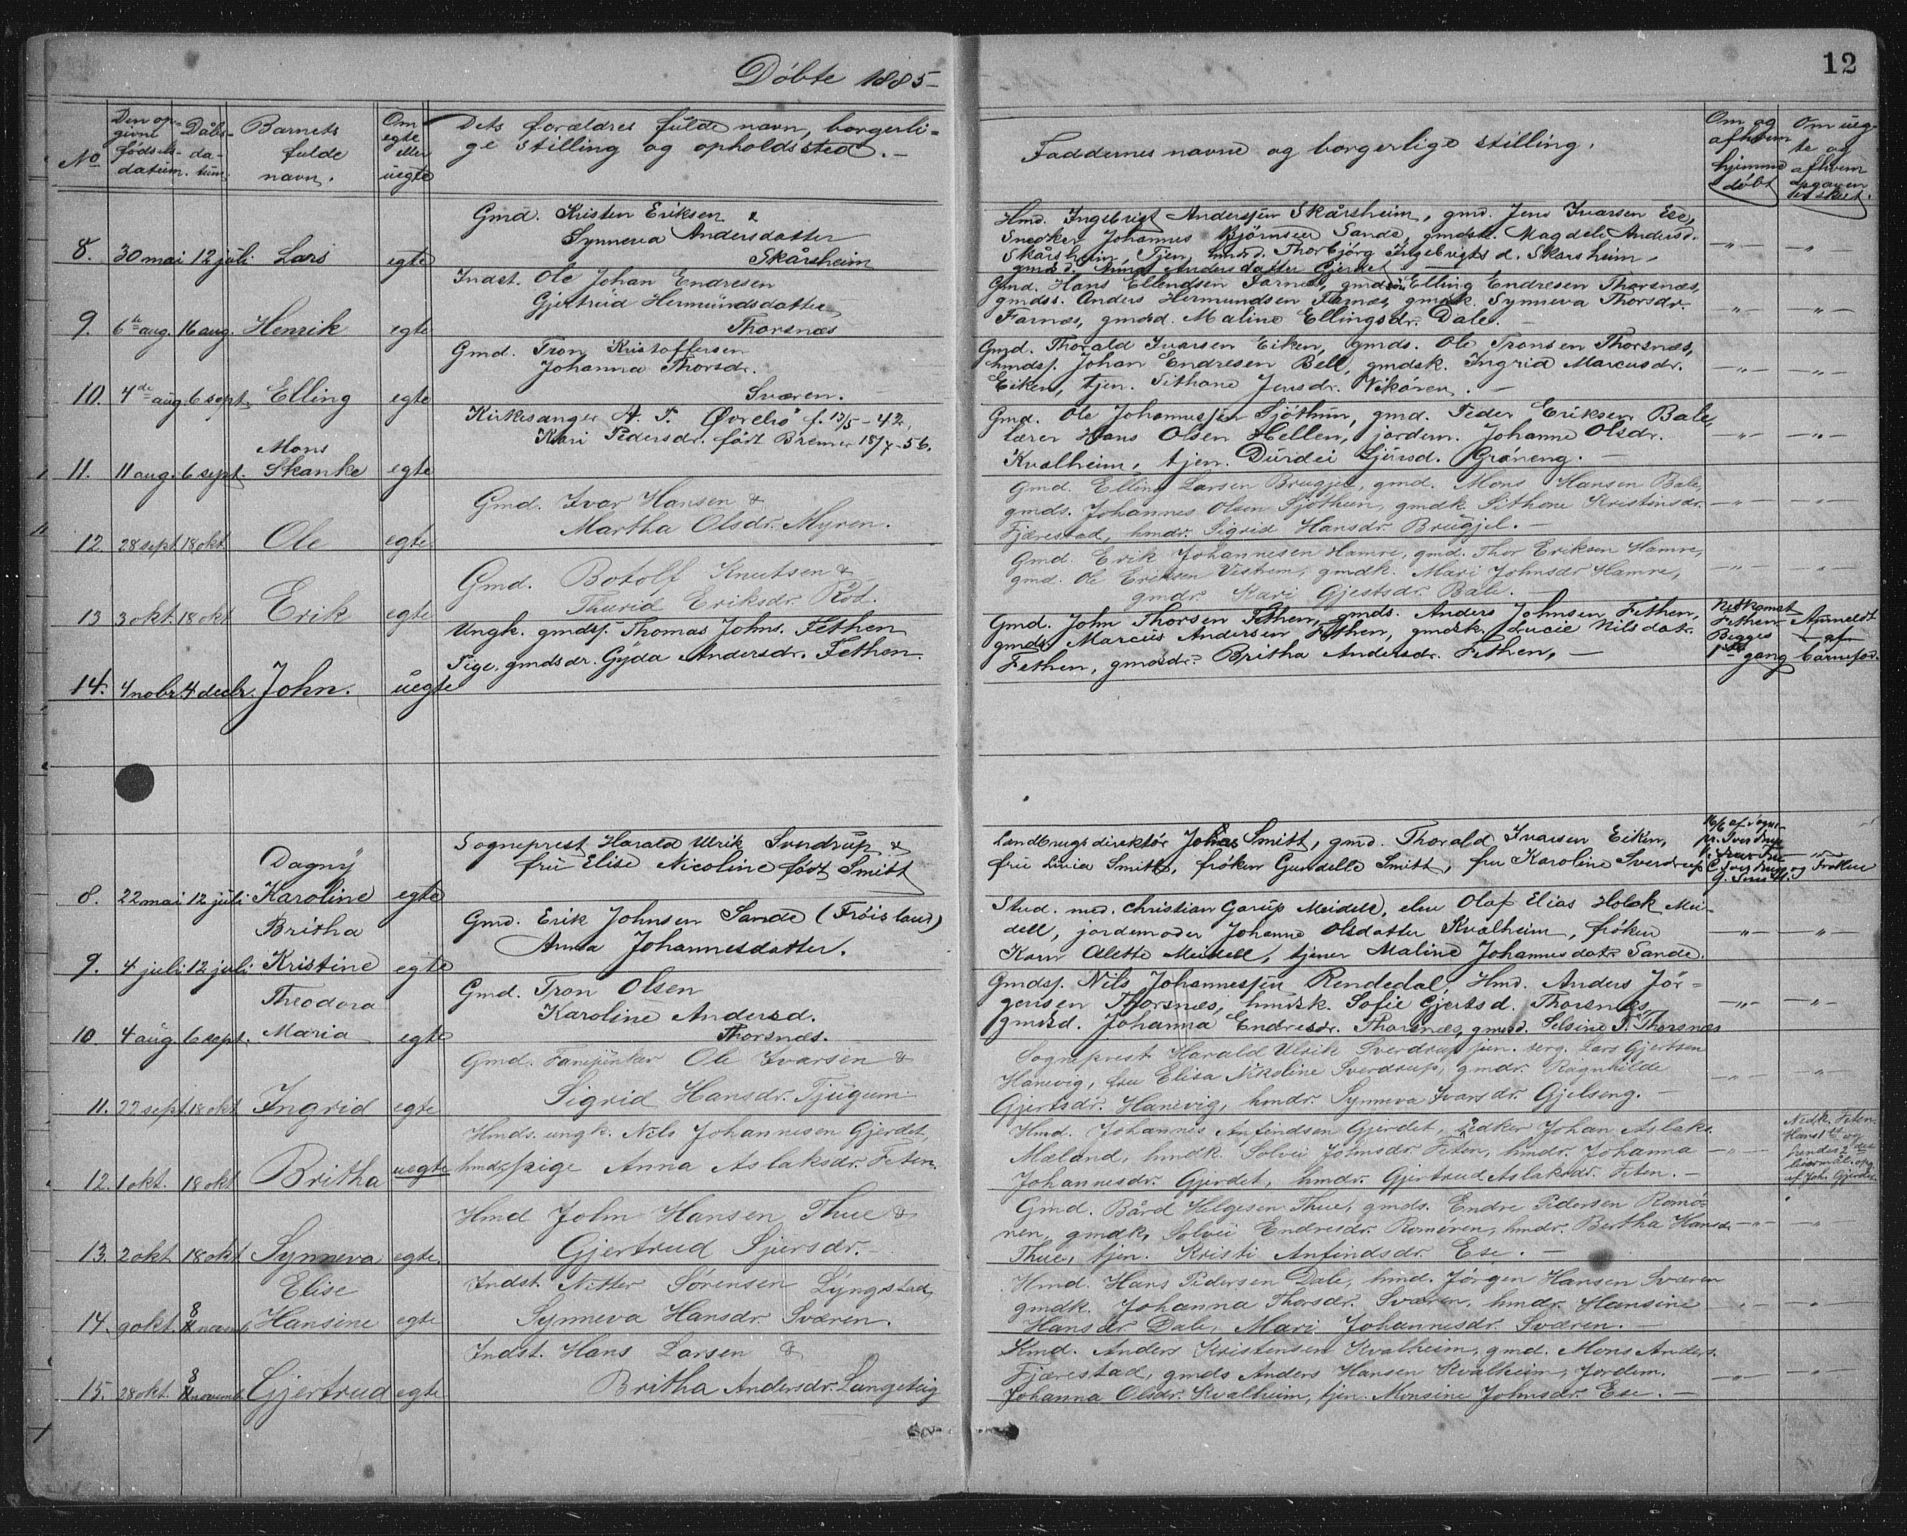 Døbte 1885
12
No
Den op-
givne
fødsels-
datum.
Dåbs-
da-
tum.
Barnets
fulde
navn.
Om
egte
eller
uegte
Dets forældres fulde navn, borgerli-
ge stilling og opholdssted. —
Faddernes navne og borgerlige stilling.
Om og
af hvem
hjemme
døbt
Om ueg-
te og
af hvem
opgaven
er skeet.
8. 30 mai 12 juli Lars egte
Gmd. Kristen Eriksen &
Synneva Andersdatter
Skårsheim
Hmd. Ingebrigt Anderssen Skårsheim, gmd. Jens Ivarsen Ese,
Snedker Johannes Bjørnsen Sande, gmdsk. Magdeli Andersd.
Skårsheim, Tjen. hmsd. Thorbjørg Ingebrigtsd. Skårsheim,
gmsd. Andersdatter Gjerdet
9. 6te aug. 16 aug. Henrik egte
Indst. Ole Johan Endresen
Gjertrud Hermundsdatter
Thorsnæs
Gmd. Hans Ellendsen Farnæs, gmds. Elling Endresen Thorsnæs,
gmdss. Anders Hermundsen Farnæs, gmdk. Synneva Thorsdr.
Farnæs, gmdsd. Maline Ellingsdr. Dale. —
10. 4de aug. 6 sept. Elling egte
Gmd. Tron Kristoffersen
Johanna Thorsdr.
Sværen.
Gmd. Thorald Ivarsen Eiken, gmds. Ole Tronsen Thorsnæs,
hmdsf. Johan Endresen Bell, gmdsk. Ingrid Marcusdr.
Eiken, tjen. Sithane Jensdr. Vikören. —
11. 11 aug. 6 sept. Mons
Skanke egte
Kirkesanger A. T. Ørrebø f. 13/5 - 42,
Kari Pedersdr. født Bremer 18/7 - 56.
Gmd. Ole Johannessen Sjøthun, gmd. Peder Eriksen Bale,
lærer Hans Olsen Hellen, jordem. Johanne Olsdr.
Kvalheim, tjen. Durdei Sjursd. Grøneng. —
12. 28 sept. 18 okt Ole egte.
Gmd. Ivar Hansen &
Martha Olsdr. Myren.
Gmd. Elling Larsen Brugjel, gmd. Mons Hansen Bale,
gmds. Johannes Olsen Sjøthun, gmdk Sithane Kristensdr.
Fjærestad, hmdr. Sigrid Hansdr. Brugjel. —
13 3 okt. 18 okt Erik egte
Gmd. Botolf Knutsen &
Thurid Eriksdr. Röd.
Gmd. Erik Johannesen Hamre, gmd. Thor Eriksen Hamre,
gmd. Ole Eriksen Vestrem, gmdk. Mari Johnsdr Hamre,
gmdr. Kari Gjestsdr. Bale. —
14. 4 nobr. 4 decbr. John. uegte
Ungk. gmdsf. Thomas Johns. Fethen
Pige, gmdsdr. Gyda Andersdr. Fethen.
Gmd. John Thorsen Fethen, gmds. Anders Johnsen Fethen,
gmds. Marcus Andersen Fethen, gmdsk. Lucie Nilsdatr.
Fethen, gmdsdr. Britha Andersdr. Fethen, —
Nedkomst
Fethen
Begges
1ste gang
Anmeldt
af
barnefad.
8. 22 mai 12 juli Dagny
Karoline egte
Sogneprest Harald Ulrik Sverdrup &
frue Elise Nicoline født Smitt
Landbrugsdirektør Johas Smitt, gmd. Thorald Ivarsen Eiken,
frue Livia Smitt, frøken Gundelle Smitt, fru Karoline Sverdrup
16/6 af Sogne-
og Frøken
9. 4 juli 12 juli Britha
Kristine egte
Gmd. Erik Johnsen Sande (Frøisland)
Anna Johannesdatter.
Stud. med. Christian Garup Meidell, elev Olaf Elias Holck Mei-
dell, jordemoder Johanne Olsdatter Kvalheim, frøken
Karn Alette Meidell, tjener Maline Johannesdatr. Sande.
10 4 aug. 6 sept. Theodora
Maria egte
Gmd. Tron Olsen
Karoline Andersd.
Thorsnæs.
Gmdsf. Nils Johannessen Rendedal, Hmd. Anders Jör-
gensen Thorsnæs, hmdsk. Sofie Gjertsd. Thorsnæs,
gmdsd. Johanna Endresdr. Thorsnæs, gmsd. Selsine T. Thorsnæs
11. 22 sept. 18 okt Ingrid egte
Gmd. Fanejunker Ole Ivarsen &
Sigrid Hansdr. Tjugum
Sogneprest Harald Ulrik Sverdrup jun. serg. Lars Gjertsen
Hanevig, fru Elisa Nikoline Sverdrup, gmdr. Ragnhilde
Gjertsdr. Hanevig, hmdr. Synneva Ivarsdr. Gjelseng. —
12. 1 okt. 18 okt Britha uegte
Hmds. ungk. Nils Johannesen Gjerdet,
hmdspige Anna Aslaksdr. Feten.
Hmd. Johannes Anfindsen Gjerdet, snedker Johan Aslaks.
Mæland, hmdk. Solvei Johnsdr. Feten, hmdr. Johanna
Johannesdr. Gjerdet, hmdr. Gjertrud Aslaksdr. Feten. —
Nedk. Feten.
Hans 1ste og
hendes 2det
leiermål. opg.
af Joh. Gjerdet.
13. 2 okt. 18 okt Synneva egte.
Hmd John Hansen Thue &
Gjertrud Sjursdr. —
Gmd. Bård Helgesen Thue, gmds. Endre Pedersen Romö-
ren, gmdk, Solvei Endresdr. Romören, hmdr. Bertha Hansdr.
Thue, tjen. Kristi Anfindsdr. Ese. —
14. 9 okt. 8 novemb. Elise
Hansine egte
Indst. Nitter Sørensen Lyngstad,
Synneva Hansdr Sværen.
Hmd. Hans Pedersen Dale, hmd. Jørgen Hansen Sværen
gmdk. Johanna Thorsdr. Sværen, hmdr. Hansine
Hansdr Dale, Mari Johannesdr. Sværen. —
15. 28 okt. 8 novemb. Gjertrud egte
Indst. Hans Larsen &
Britha Andersdr. Langeteig
Kmd. Anders Kristensen Kvalheim, gmd. Mons Anders.
Fjærestad, gmds Anders Hansen Kvalheim, Jordem.
Johanna Olsdr. Kvalheim, tjen. Monsine Johnsdr. Ese. —